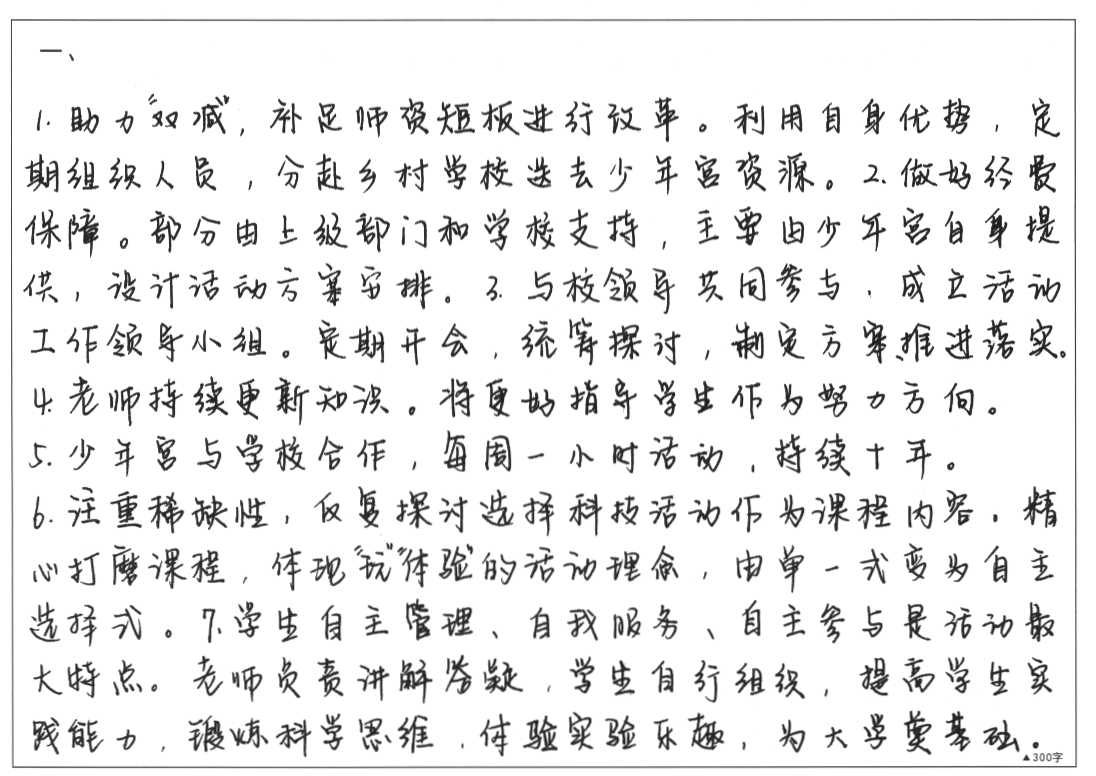 一、
1. 助力“双减”，补足师资短板进行改革。利用自身优势，定
期组织人员，分赴乡村学校送去少年宫资源。2. 做好经费
保障。部分由上级部门和学校支持，主要由少年宫自身提
供，设计活动方案安排。3. 与校领导共同参与，成立活动
工作领导小组。定期开会，统筹探讨，制定方案、推进落实。
4. 老师持续更新知识。将更好指导学生作为努力方向。
5. 少年宫与学校合作，每周一小时活动，持续十年。
6. 注重稀缺性，反复探讨选择科技活动作为课程内容。精
心打磨课程，体现“玩”“体验”的活动理念，由单一式变为自主
选择式。7. 学生自主管理、自我服务、自主参与是活动最
大特点。老师负责讲解答疑，学生自行组织，提高学生实
践能力，锻炼科学思维，体验实验乐趣，为大学奠基础。
▲300字